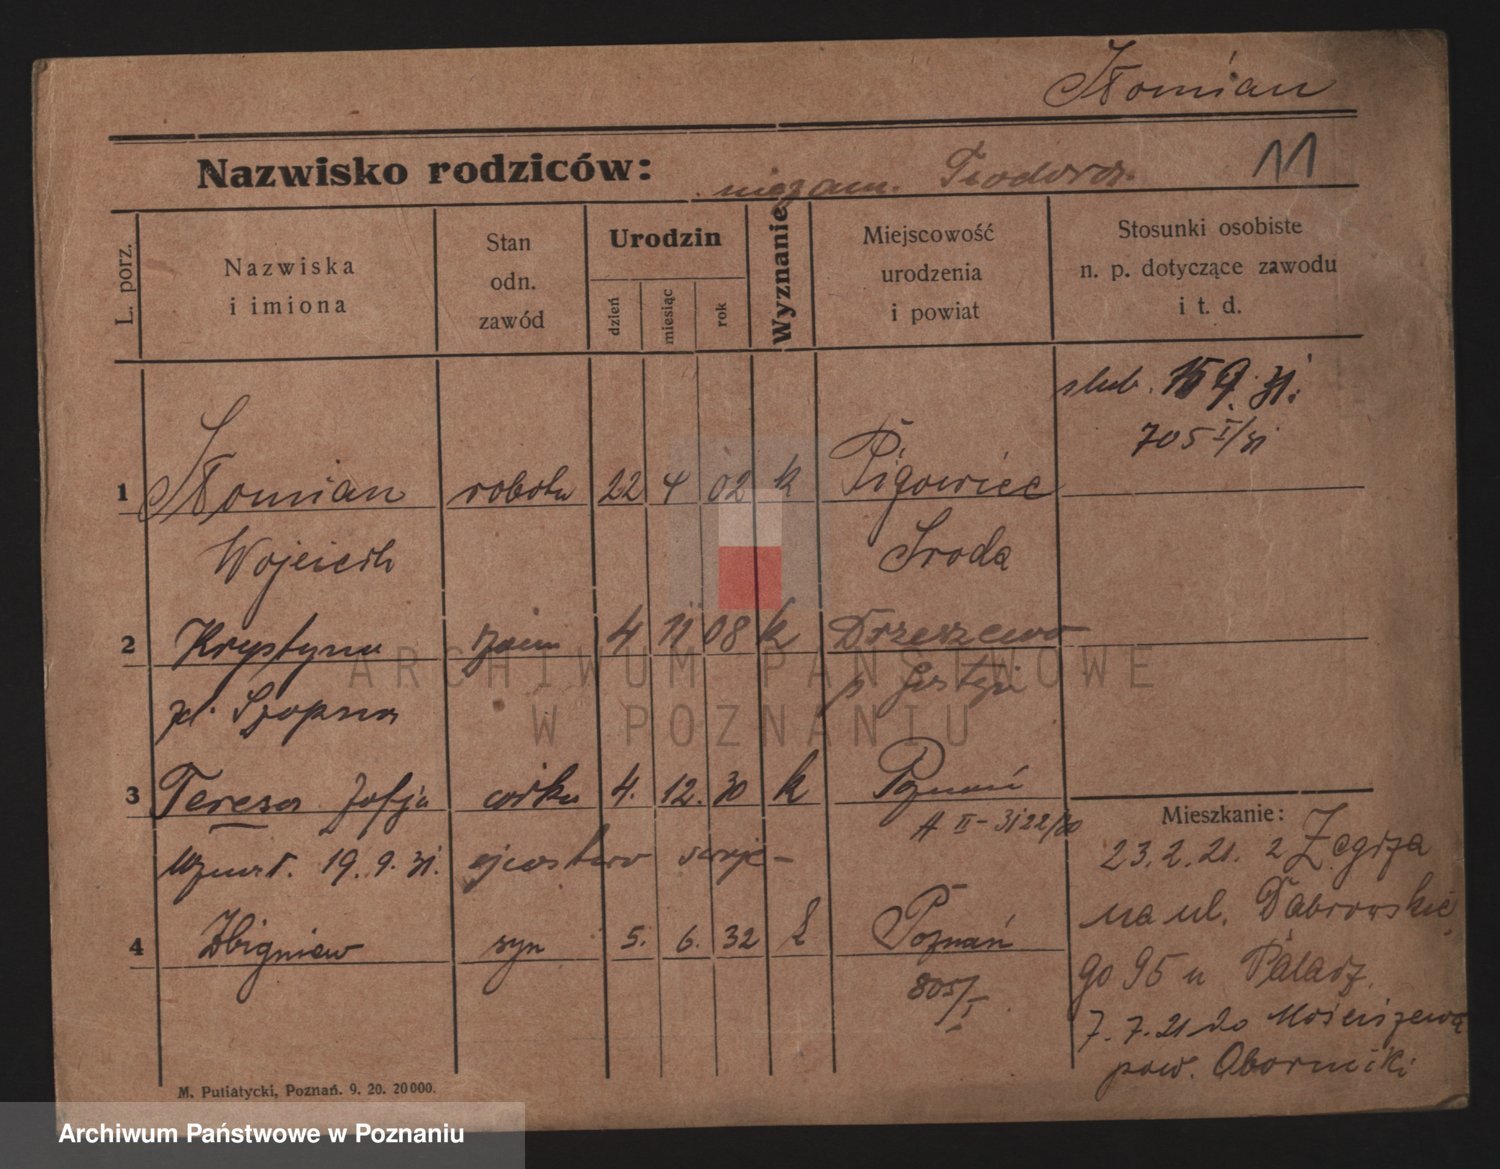 Słomian
Nazwisko rodziców: niezam. Teodora
11
L. porz.
Nazwiska
i imiona
Stan
odn.
zawód
Urodzin
dzień
miesiąc
rok
Wyznanie
Miejscowość
urodzenia
i powiat
Stosunki osobiste
n. p. dotyczące zawodu
i t. d.
ślub. 15 9. 31.
705 I/31
1 Słomian robotn 22 4 02 k Pigowiec
Wojciech Środa
2 Krystyna zam 4 11 08 k Drzeszewo
zd. Szopna p Gostyń
3 Teresa Zofja córka 4. 12. 30 k Poznań
A II-3122/30
uznał. 19. 9. 31. ojcostwo swoje-
4 Zbigniew syn 5. 6. 32 k Poznań
805/I
Mieszkanie:
23.2.21. z Zegrza
na ul. Dąbrowskie
go 95 u Palacz
7. 7. 21 do Mościszewa
pow. Oborniki
M. Putiatycki, Poznań. 9. 20. 20000.
ARCHIWUM PAŃSTWOWE
W POZNANIU
Archiwum Państwowe w Poznaniu